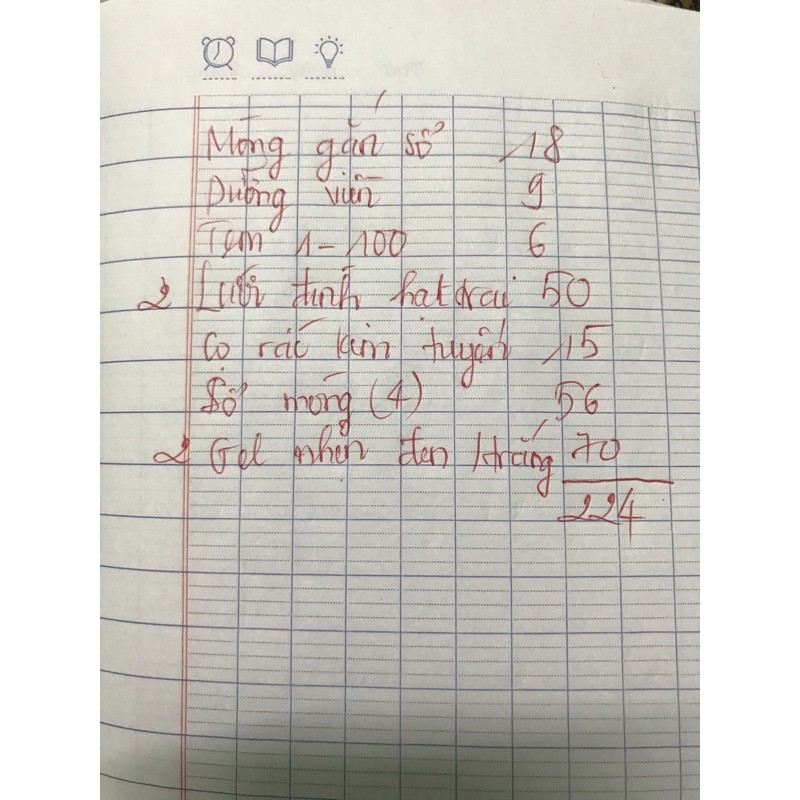 Móng gắn số 18
Dường viền 9
Tem 1-100 6
2 Lưới đính hạt trai 50
Cọ rắc kim tuyến 15
Sổ móng (4) 56
2 Gel nhện đen trắng 70
224